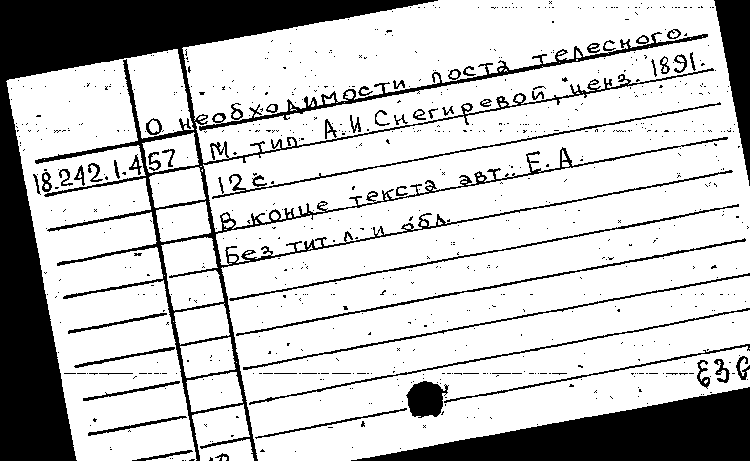 О необходимости поста телесного.
М., тип. А.И. Снегиревой, ценз. 1891.
18.242.1.457
12 с.
В конце текста авт.: Е. А.
Без тит. л. и обл.